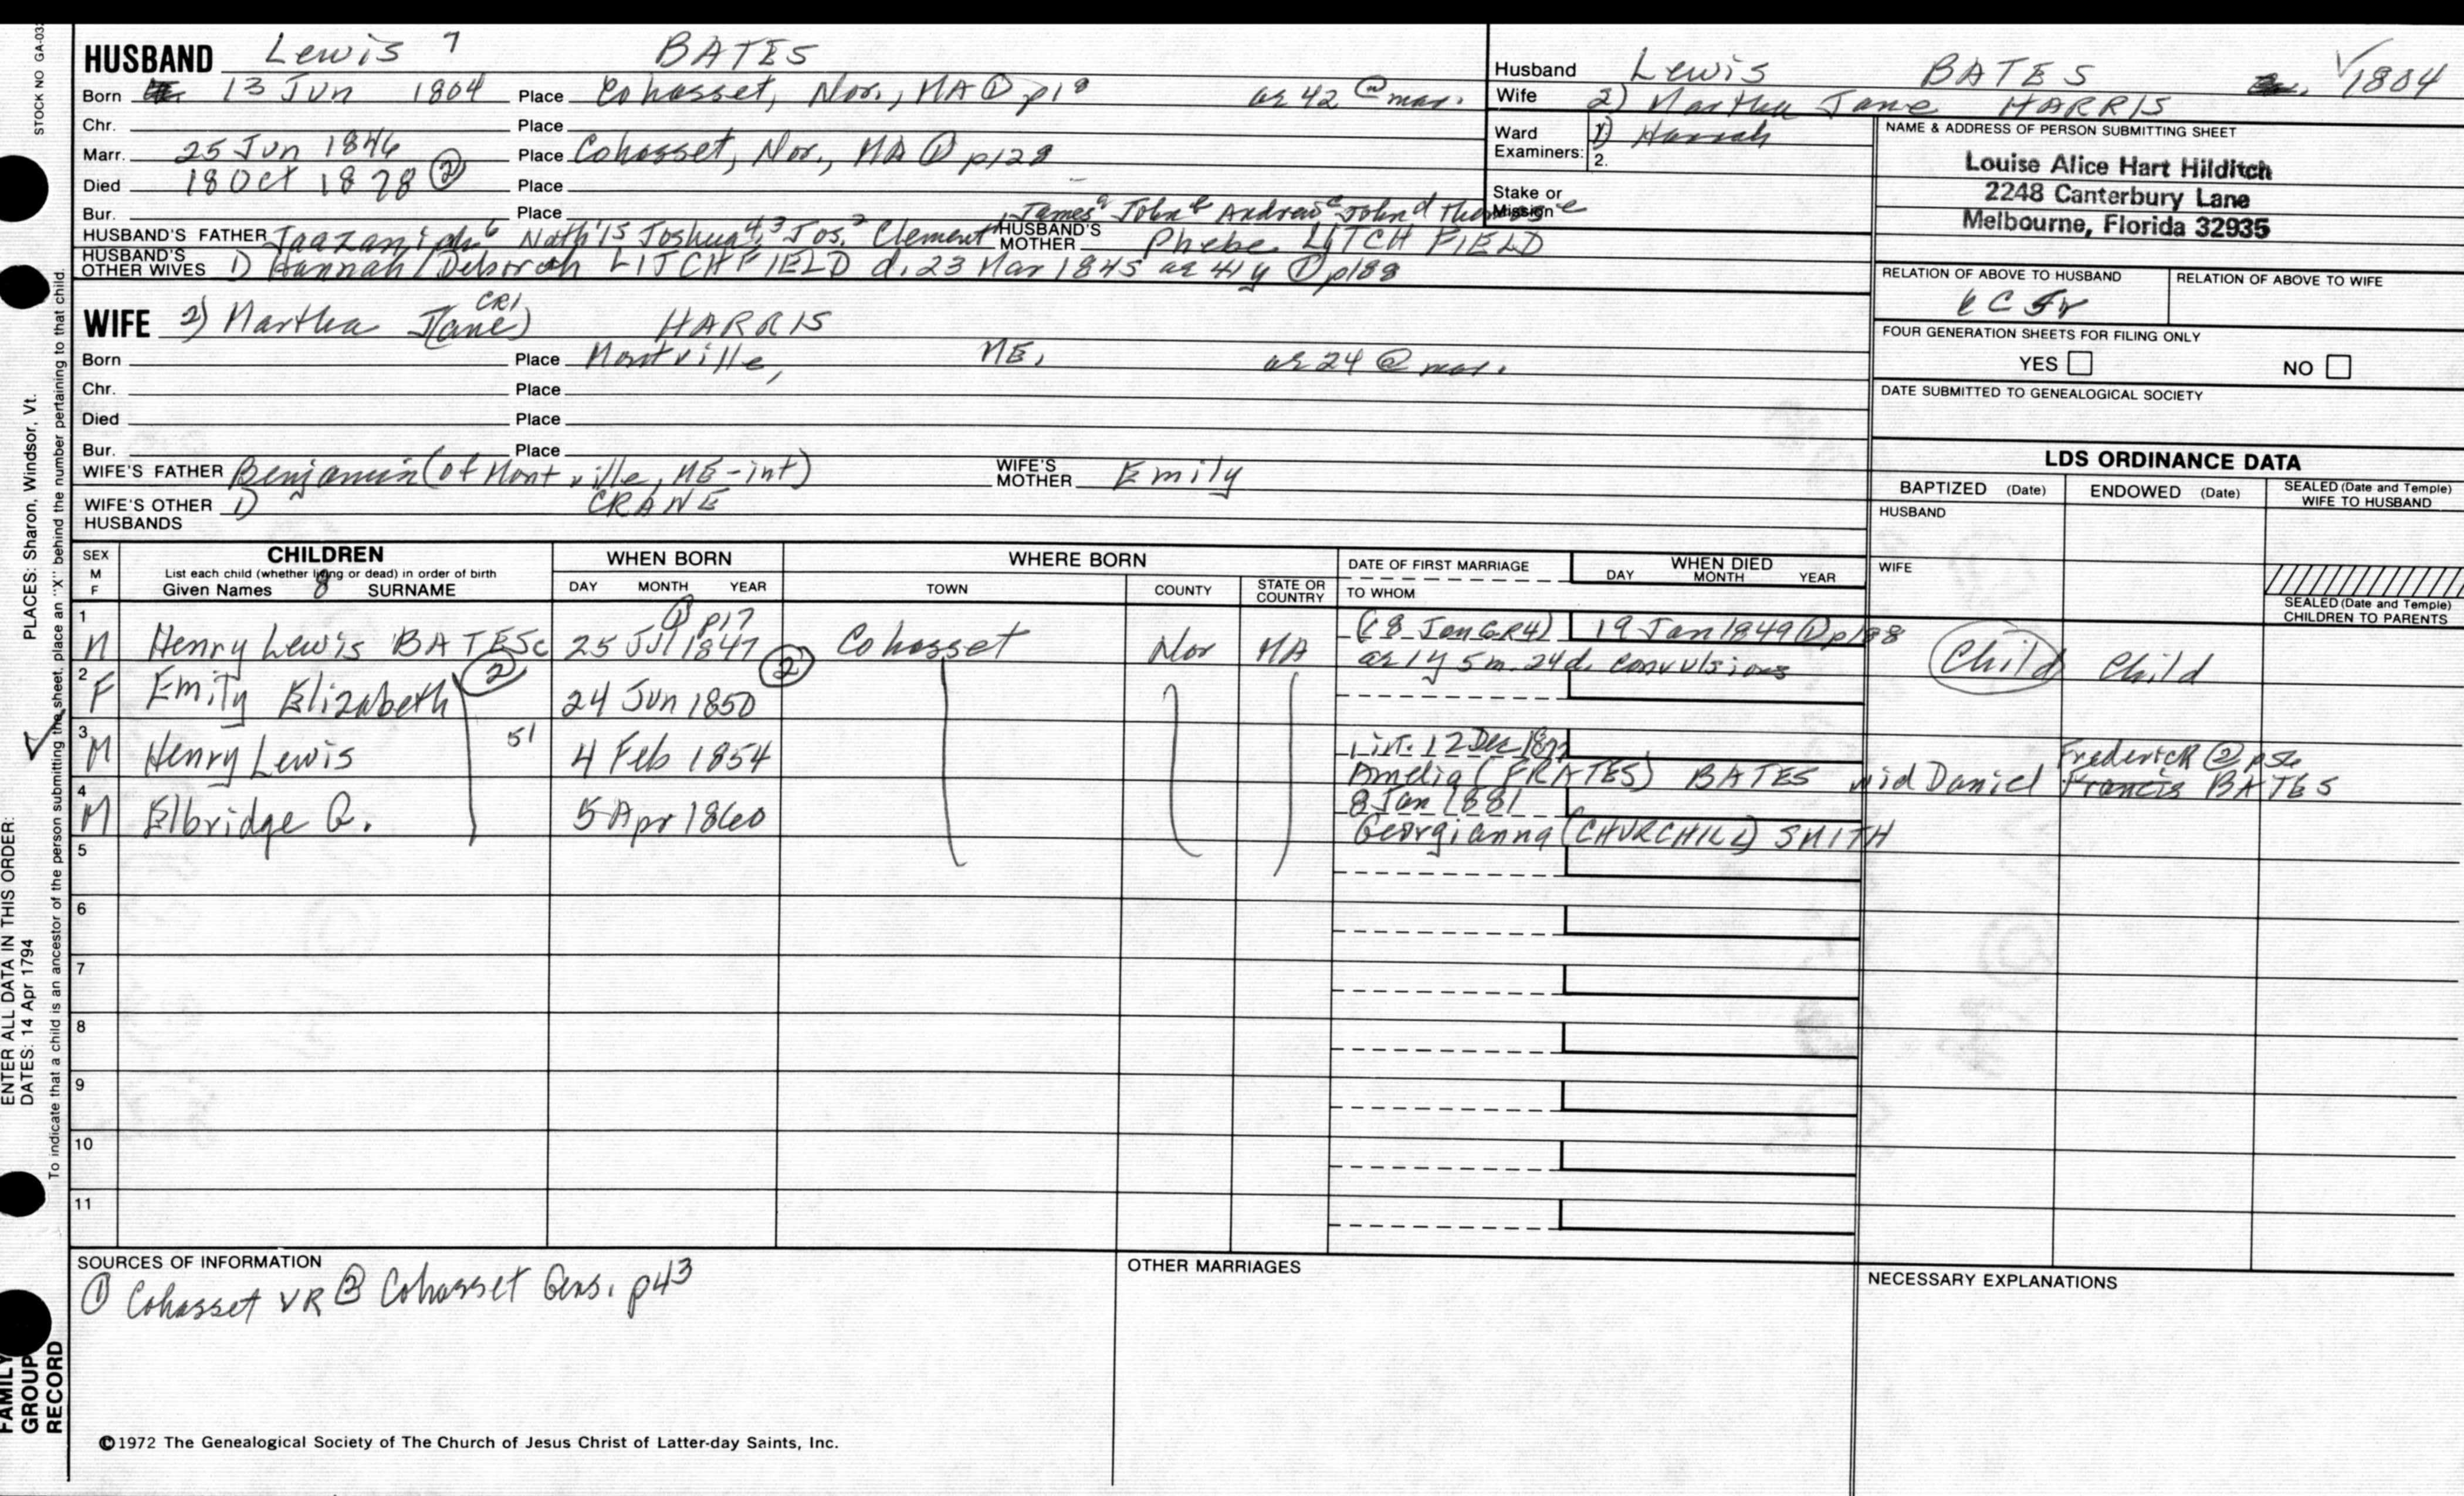 STOCK NO GA-03
HUSBAND Lewis 7 BATES
Born 13 Jun 1804 Place Cohasset, Nor., MA ① p18 ae 42 @ mar.
Chr. Place
Marr. 25 Jun 1846 Place Cohasset, Nor., MA ① p128
Died 18 Oct 1878 ② Place
Bur. Place
James a John b Andrew c John d Thomas e
HUSBAND'S FATHER Jaazaniah 6 Nath'l 5 Joshua 4,3 Jos. 2 Clement 1 HUSBAND'S MOTHER Phebe LITCHFIELD
HUSBAND'S OTHER WIVES 1) Hannah/Deborah LITCHFIELD d. 23 Mar 1845 ae 41 y ① p188
Husband Lewis BATES √1804
Wife 2) Martha Jane HARRIS
Ward 1) Hannah
Examiners: 2.
Stake or Mission
NAME & ADDRESS OF PERSON SUBMITTING SHEET
Louise Alice Hart Hilditch
2248 Canterbury Lane
Melbourne, Florida 32935
RELATION OF ABOVE TO HUSBAND RELATION OF ABOVE TO WIFE
6C5r
FOUR GENERATION SHEETS FOR FILING ONLY
YES NO
DATE SUBMITTED TO GENEALOGICAL SOCIETY
WIFE 2) Martha J(ane) CR1 HARRIS
Born Place Montville, ME, ae 24 @ mar.
Chr. Place
Died Place
Bur. Place
WIFE'S FATHER Benjamin (of Montville, ME-int) WIFE'S MOTHER Emily
WIFE'S OTHER HUSBANDS 1) CRANE
LDS ORDINANCE DATA
BAPTIZED (Date) ENDOWED (Date) SEALED (Date and Temple) WIFE TO HUSBAND
HUSBAND
WIFE
SEALED (Date and Temple) CHILDREN TO PARENTS
SEX M F
CHILDREN
List each child (whether living or dead) in order of birth
Given Names 8 SURNAME
WHEN BORN
DAY MONTH YEAR
WHERE BORN
TOWN COUNTY STATE OR COUNTRY
DATE OF FIRST MARRIAGE
TO WHOM
WHEN DIED
DAY MONTH YEAR
① p17
1 M Henry Lewis BATES 25 Jul 1847 Cohasset Nor MA (18 Jan GR4) 19 Jan 1849 ① p188
ae 1y 5m 24d. convulsions Child Child
2 F Emily Elizabeth ② 24 Jun 1850 ②
3 M Henry Lewis 51 4 Feb 1854 int. 12 Dec 1877
Amelia (FRATES) BATES wid Daniel Francis BATES
Frederick ② p56
4 M Elbridge G. 5 Apr 1860 8 Jan 1881
Georgianna (CHURCHILL) SMITH
5
6
7
8
9
10
11
SOURCES OF INFORMATION
① Cohasset VR ② Cohasset Gens. p43
OTHER MARRIAGES
NECESSARY EXPLANATIONS
©1972 The Genealogical Society of The Church of Jesus Christ of Latter-day Saints, Inc.
ENTER ALL DATA IN THIS ORDER:
DATES: 14 Apr 1794 PLACES: Sharon, Windsor, Vt.
To indicate that a child is an ancestor of the person submitting the sheet, place an "X" behind the number pertaining to that child.
FAMILY GROUP RECORD